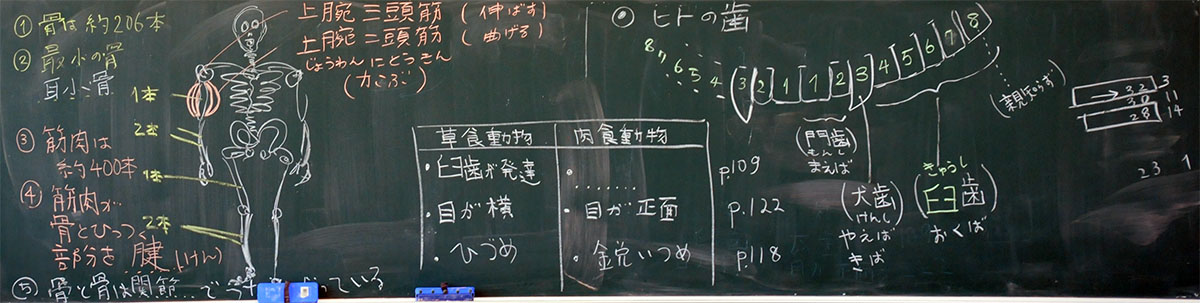 ① 骨は約206本
② 最小の骨
耳小骨
③ 筋肉は
約400本
④ 筋肉が
骨とひっつく
部分を 腱 (けん)
⑤ 骨と骨は関節…で
ている
1本
2本
1本
2本
上腕三頭筋 (伸ばす)
上腕二頭筋 (曲げる)
じょうわんにとうきん
(力こぶ)
草食動物 肉食動物
・臼歯が発達 ・‥‥‥ p109
・目が横 ・目が正面 p.122
・ひづめ ・鋭いつめ p118
◎ ヒトの歯
8 7 6 5 4 3 2 1 1 2 3 4 5 6 7 8
(親知らず)
(門歯)
もんし
まえば
(犬歯)
けんし
やえば
きば
きゅうし
(臼歯)
おくば
32 3
30 11
28 14
23 1